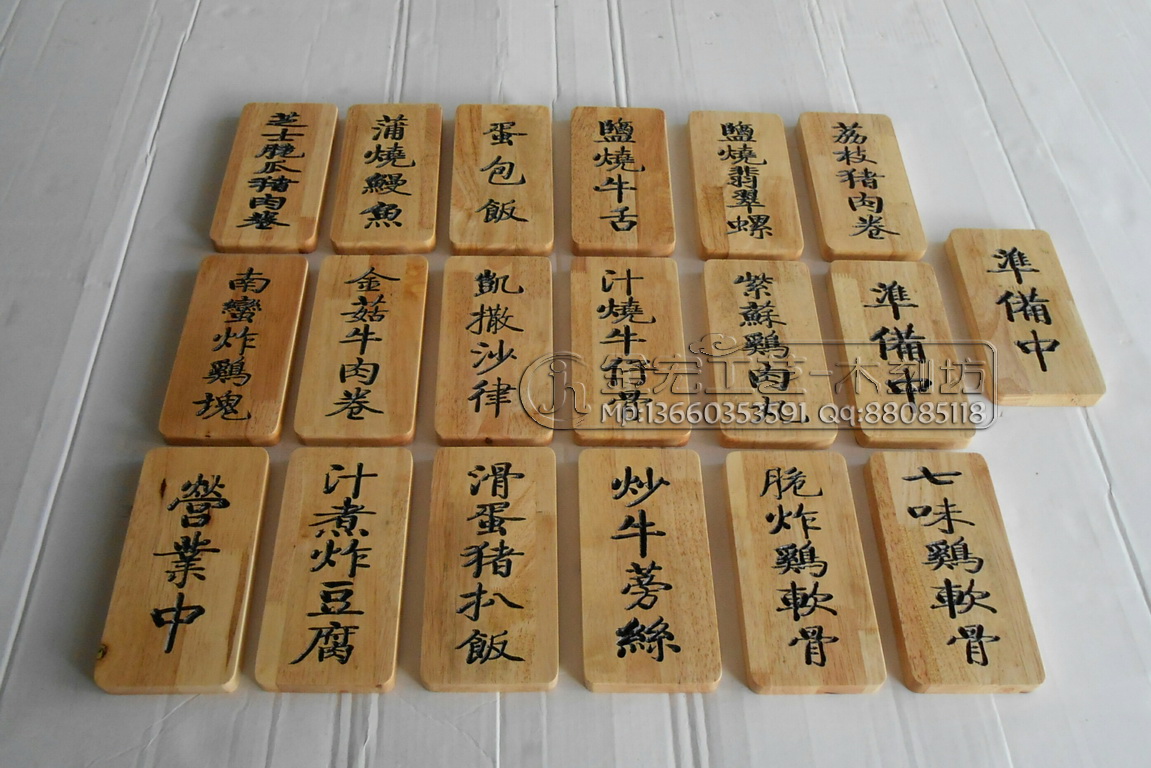 芝士脆瓜豬肉卷
蒲燒鰻魚
蛋包飯
鹽燒牛舌
鹽燒翡翠螺
荔枝豬肉卷
南蠻炸鷄塊
金菇牛肉卷
凱撒沙律
汁燒牛仔骨
紫蘇鷄肉丸
準備中
準備中
營業中
汁煮炸豆腐
滑蛋猪扒飯
炒牛蒡絲
脆炸鷄軟骨
七味鷄軟骨
宏工艺-木刻坊
Mp:13660353591 QQ:88085118